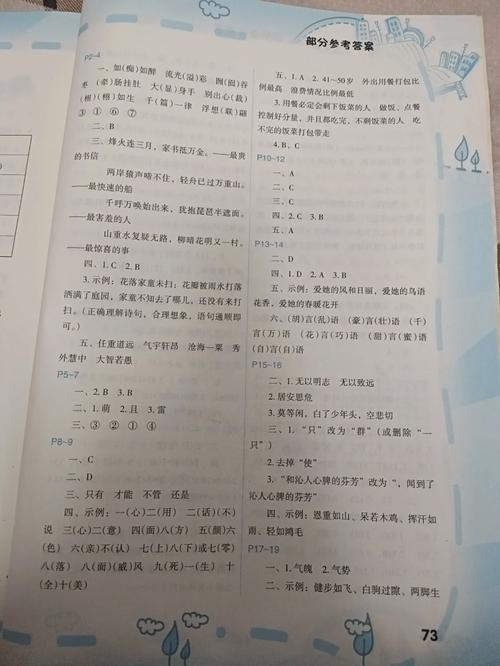 部分参考答案
P2~4
一、如(痴)如醉 流光(溢)彩 囫(囵)吞
枣 (牵)肠挂肚 大(显)身手 别出心(裁)
(栩)(栩)如生 千(篇)一律 浮想(联)翩
③ ① ⑥ ⑦
二、B
三、烽火连三月，家书抵万金。——最贵
的书信
两岸猿声啼不住，轻舟已过万重山。
——最快速的船
千呼万唤始出来，犹抱琵琶半遮面。
——最害羞的人
山重水复疑无路，柳暗花明又一村。
——最惊喜的事
四、1. C 2. B
3. 示例：花落家童未扫：花瓣被雨水打落
洒满了庭园，家童不知去了哪儿，还没有来打
扫。（正确理解诗句，合理想象，语句通顺即
可。）
五、任重道远 气宇轩昂 沧海一粟 秀
外慧中 大智若愚
P5~7
一、2. B 3. B
二、1. 萌 2. 且 3. 雷
三、③ ② ① ④
P8~9
一、C
二、D
三、只有 才能 不管 还是
四、示例：一(心)二(用) 二(话)(不)
说 三(心)二(意) 四(面)八(方) 五(颜)六
(色) 六(亲)不(认) 七(上)八(下)或七(零)
八(落) 八(面)(威)风 九(死)一(生) 十
(全)十(美)
五、1. A 2. 41~50岁 外出用餐打包比
例最高 浪费情况比例最低
3. 用餐必定会剩下饭菜的人 做饭、点餐
控制好分量，并且都吃完，不剩饭菜的人 吃
不完的饭菜打包带走
4. B、C
P10~12
一、A
二、A
三、C
四、2. C 3. B
五、A
P13~14
二、D
四、1. D 2. A 3. B
五、示例：爱她的风和日丽，爱她的鸟语
花香，爱她的春暖花开
六、(胡)言(乱)语 (豪)言(壮)语 (千)
言(万)语 (花)言(巧)语 (甜)言(蜜)语
(自)言(自)语
P15~16
二、1. 无以明志 无以致远
2. 居安思危
3. 莫等闲，白了少年头，空悲切
三、1. “只”改为“群”（或删除“一
只”）
2. 去掉“使”
3. “和沁人心脾的芬芳”改为“，闻到了
沁人心脾的芬芳”
四、示例：恩重如山、呆若木鸡、挥汗如
雨、轻如鸿毛
P17~19
一、1. 气魄 2. 气势
二、示例：健步如飞、白驹过隙、两脚生
73